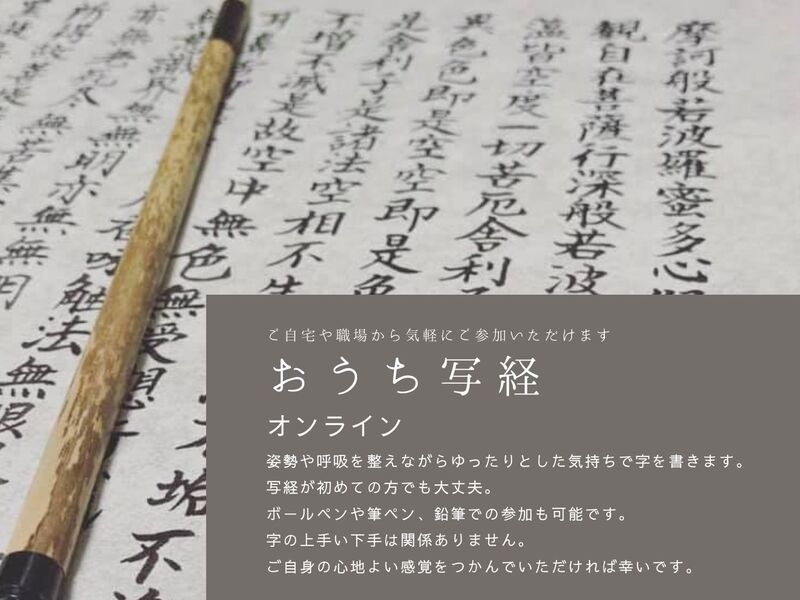 摩訶般若波羅蜜多心
観自在菩薩行深般若波
蘊皆空度一切苦厄舎利
異色色即是空空即是色
是舎利子是諸法空相不生
不増不減是故空中無色無受想
触法無眼
無意識界無無明亦無無明
亦無老死尽無苦集
垢不
ご自宅や職場から気軽にご参加いただけます
おうち写経
オンライン
姿勢や呼吸を整えながらゆったりとした気持ちで字を書きます。
写経が初めての方でも大丈夫。
ボールペンや筆ペン、鉛筆での参加も可能です。
字の上手い下手は関係ありません。
ご自身の心地よい感覚をつかんでいただければ幸いです。